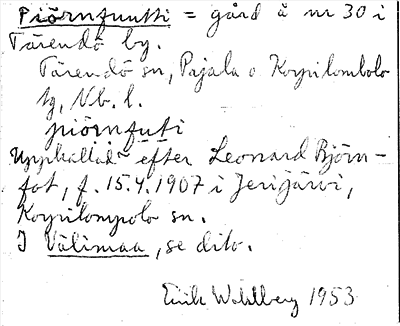 Piörnfuutti = gård å nr 30 i
Tärendö by.
Tärendö sn, Pajala o Korpilombolo
tg, Nb. l.
piörnfuti
Uppkallad efter Leonard Björn-
fot, f. 15.4.1907 i Jerijärvi,
Korpilompolo sn.
I Välimaa, se dito.
Erik Wahlberg 1953